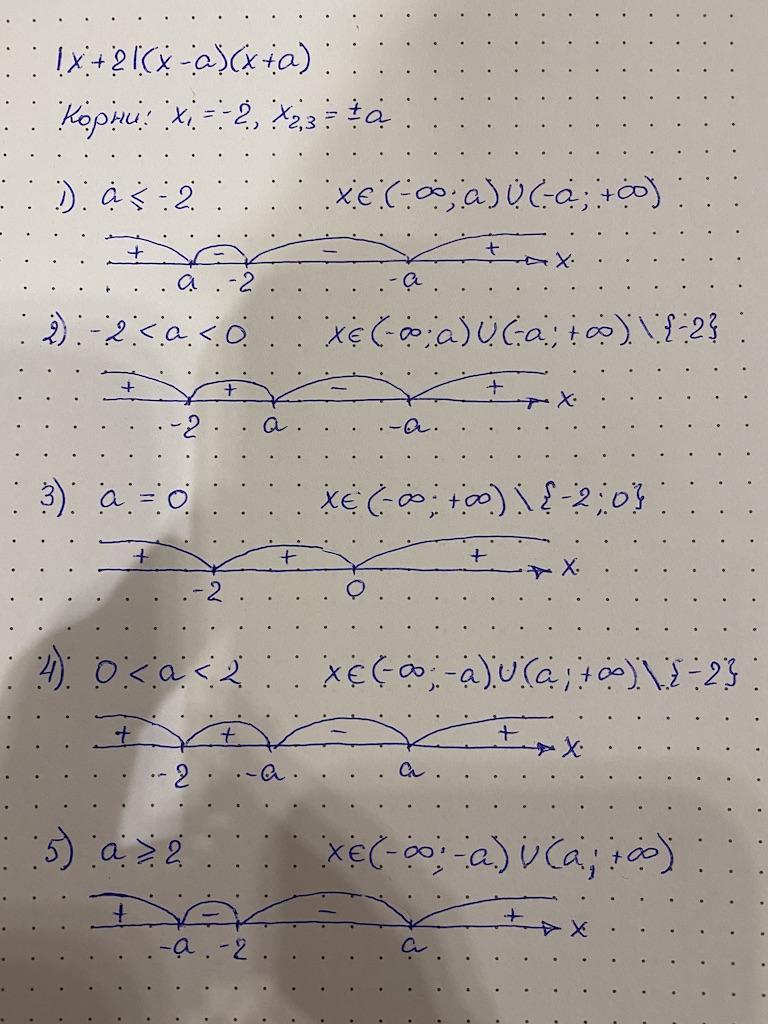 |x+2|(x-a)(x+a)
Корни: x₁=-2, x₂,₃=±a
1) a ⩽ -2 x∈(-∞; a)∪(-a; +∞)
+ - - + x
a -2 -a
2) -2 < a < 0 x∈(-∞; a)∪(-a; +∞)\{-2}
+ + - + x
-2 a -a
3) a = 0 x∈(-∞; +∞)\{-2; 0}
+ + + x
-2 0
4) 0 < a < 2 x∈(-∞; -a)∪(a; +∞)\{-2}
+ + - + x
-2 -a a
5) a ⩾ 2 x∈(-∞; -a)∪(a; +∞)
+ - - + x
-a -2 a